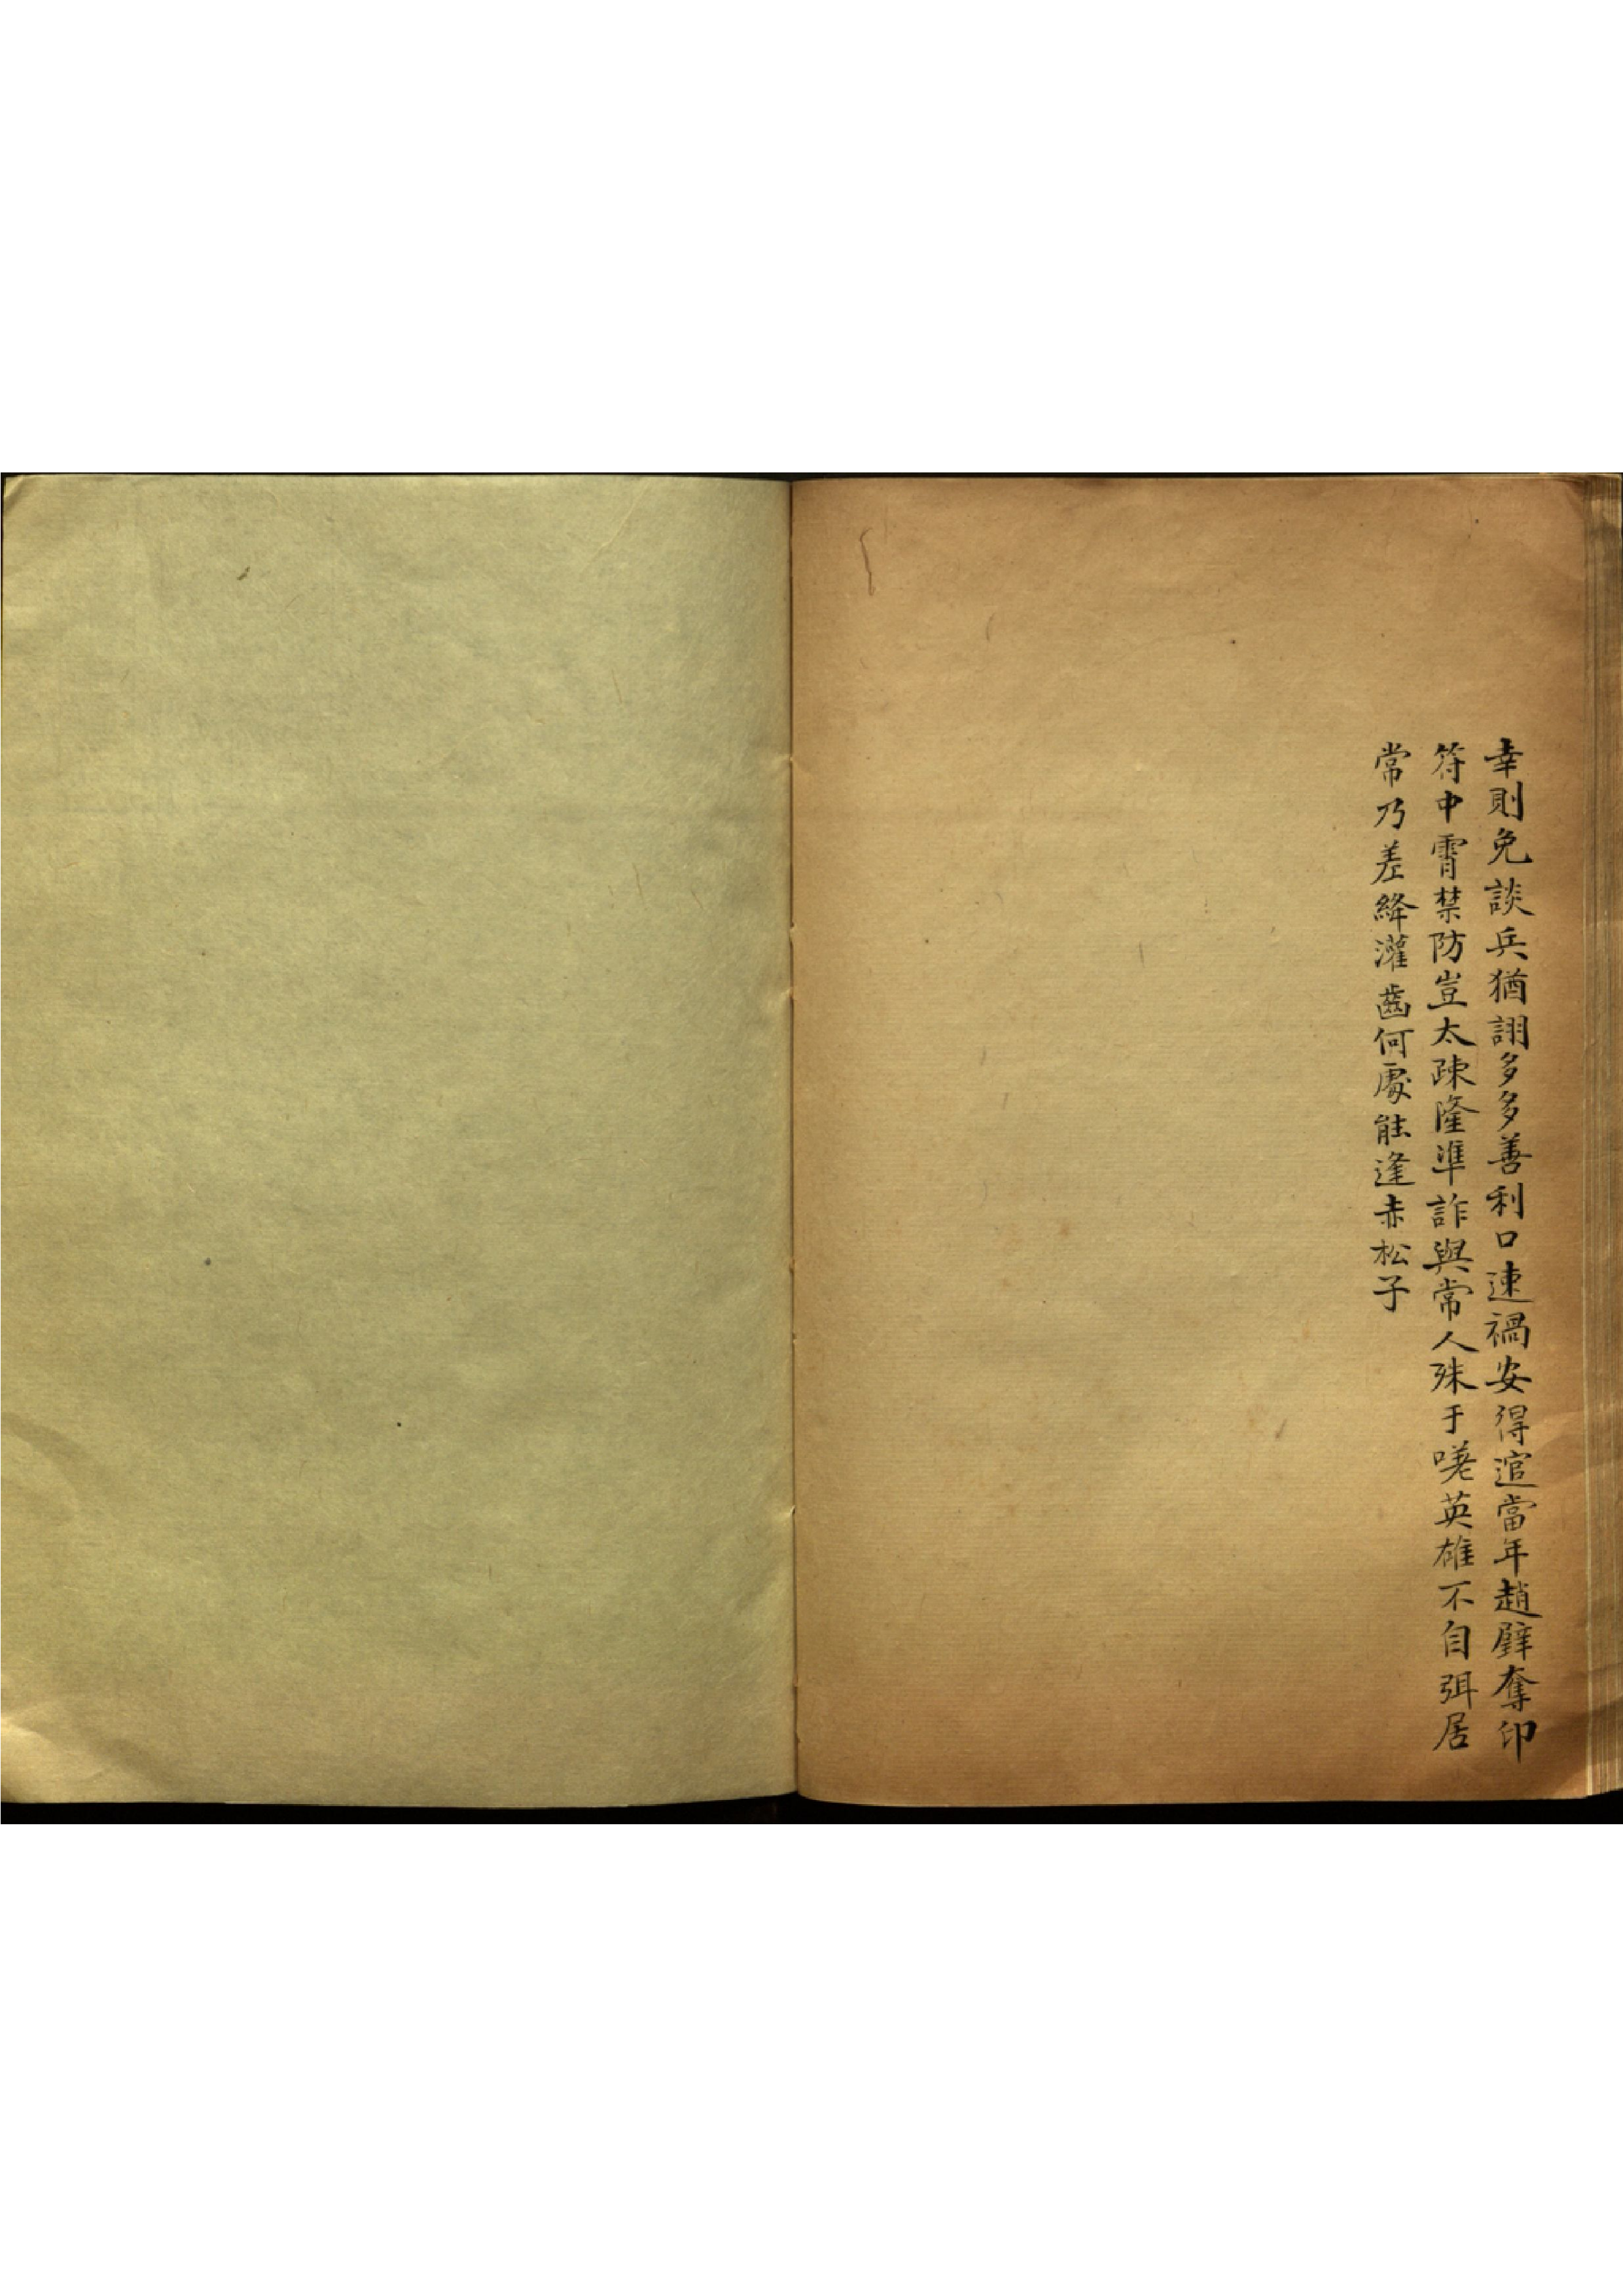 幸則免談兵猶詡多多善利口速禍安得逭當年趙壁奪印
符中霄禁防豈太疎隆準詐與常人殊于嗟英雄不自弭居
常乃差絳灌齒何處能逢赤松子